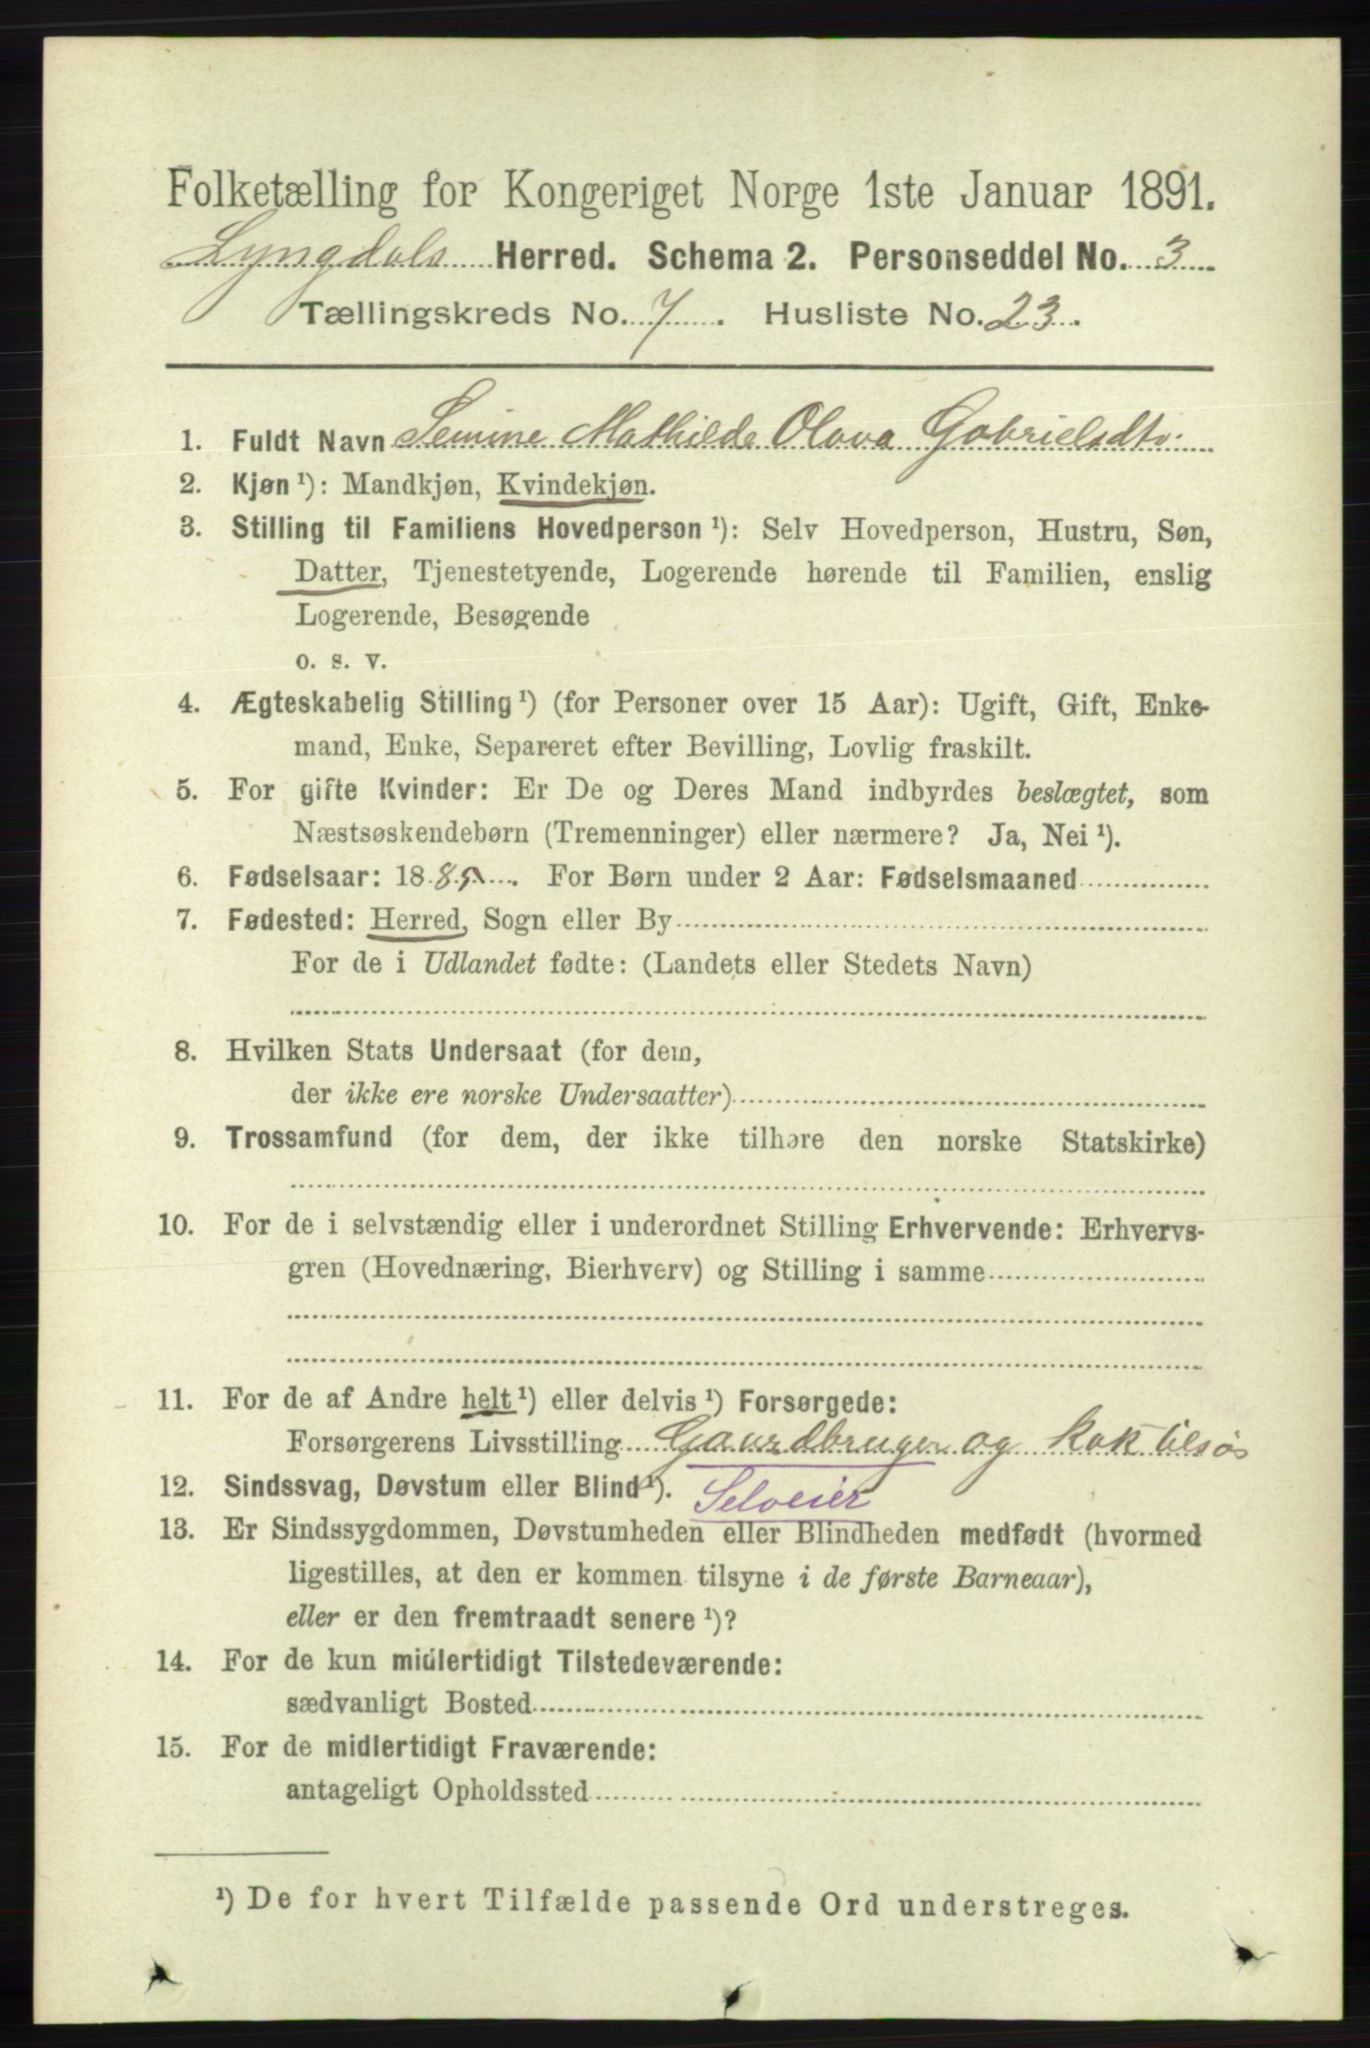 Folketælling for Kongeriget Norge 1ste Januar 1891.
Lyngdals Herred. Schema 2. Personseddel No. 3
Tællingskreds No. 7. Husliste No. 23.
1. Fuldt Navn Semine Mathilde Olava Gabrielsdtr.
2. Kjøn ¹): Mandkjøn, Kvindekjøn.
3. Stilling til Familiens Hovedperson ¹): Selv Hovedperson, Hustru, Søn,
Datter, Tjenestetyende, Logerende hørende til Familien, enslig
Logerende, Besøgende
o. s. v.
4. Ægteskabelig Stilling ¹) (for Personer over 15 Aar): Ugift, Gift, Enke-
mand, Enke, Separeret efter Bevilling, Lovlig fraskilt.
5. For gifte Kvinder: Er De og Deres Mand indbyrdes beslægtet, som
Næstsøskendebørn (Tremenninger) eller nærmere? Ja, Nei ¹).
6. Fødselsaar: 1885. For Børn under 2 Aar: Fødselsmaaned
7. Fødested: Herred, Sogn eller By
For de i Udlandet fødte: (Landets eller Stedets Navn)
8. Hvilken Stats Undersaat (for dem,
der ikke ere norske Undersaatter)
9. Trossamfund (for dem, der ikke tilhøre den norske Statskirke)
10. For de i selvstændig eller i underordnet Stilling Erhvervende: Erhvervs-
gren (Hovednæring, Bierhverv) og Stilling i samme
11. For de af Andre helt ¹) eller delvis ¹) Forsørgede:
Forsørgerens Livsstilling Gaardbruger og Kok tilsøs
12. Sindssvag, Døvstum eller Blind ¹). Selveier
13. Er Sindssygdommen, Døvstumheden eller Blindheden medfødt (hvormed
ligestilles, at den er kommen tilsyne i de første Barneaar),
eller er den fremtraadt senere ¹)?
14. For de kun midlertidigt Tilstedeværende:
sædvanligt Bosted
15. For de midlertidigt Fraværende:
antageligt Opholdssted
¹) De for hvert Tilfælde passende Ord understreges.